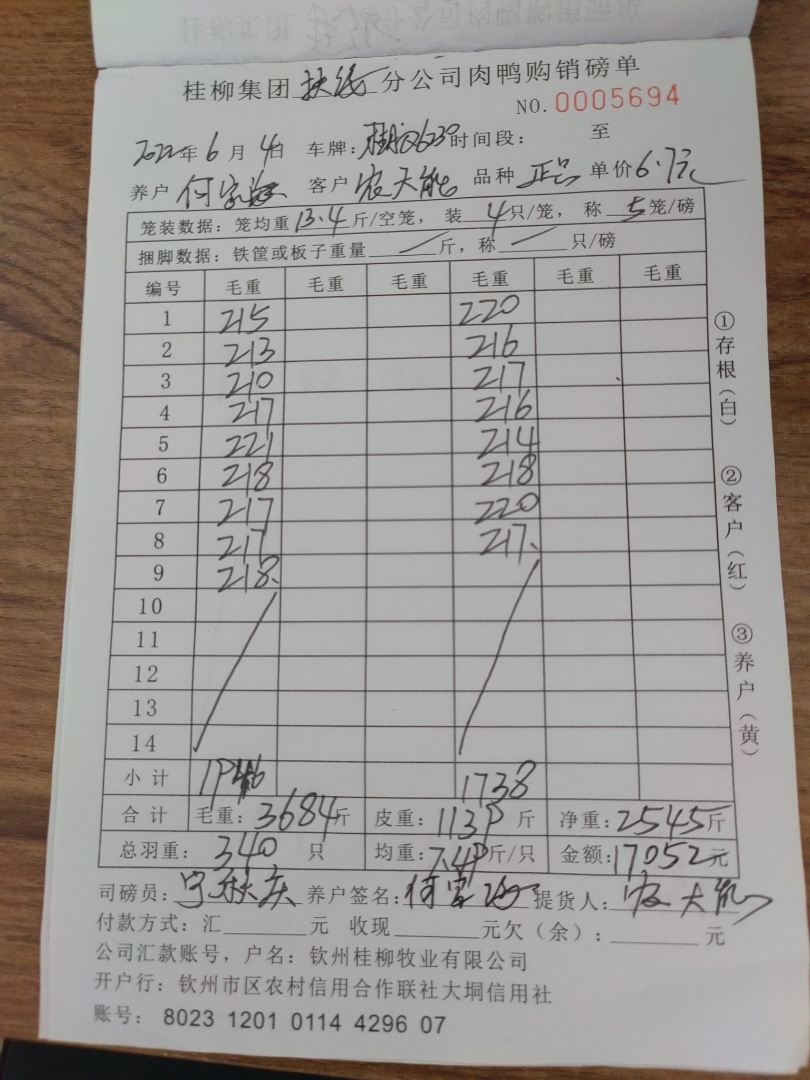 桂柳集团 扶绥 分公司肉鸭购销磅单
NO.0005694
2022年6月4日 车牌: 时间段: 至
养户 何 客户 农天能 品种 正品 单价6.7元
笼装数据:笼均重13.4斤/空笼, 装4只/笼, 称5笼/磅
捆脚数据:铁筐或板子重量 斤,称 只/磅
编号 毛重 毛重 毛重 毛重 毛重 毛重
1 215 220
2 213 216
3 210 217
4 217 216
5 221 214
6 218 218
7 217 220
8 217 217
9 218
10
11
12
13
14
小计 1946 1738
合计 毛重:3684斤 皮重:1139斤 净重:2545斤
总羽重:340只 均重:7.49斤/只 金额:17052元
司磅员: 养户签名:何 提货人:农天能
付款方式:汇 元 收现 元欠(余): 元
公司汇款账号,户名:钦州桂柳牧业有限公司
开户行:钦州市区农村信用合作联社大垌信用社
账号: 8023 1201 0114 4296 07
①存根(白)
②客户(红)
③养户(黄)